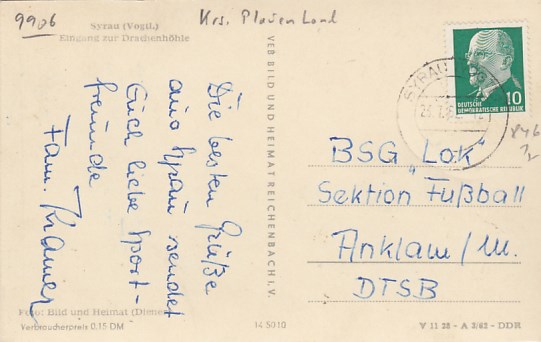 9906
Krs. Plauen Land
Syrau (Vogtl.)
Eingang zur Drachenhöhle
Die besten Grüße
aus Syrau sendet
Euch liebe Sport-
freunde
Fam. Kramer
Foto: Bild und Heimat
Verbraucherpreis 0,15 DM
VEB BILD UND HEIMAT REICHENBACH I. V.
14 5010
SYRAU
DEUTSCHE
DEMOKRATISCHE REPUBLIK
10
BSG „Lok"
Sektion Fußball
Anklam/M.
DTSB
V 11 28 - A 3/62 - DDR